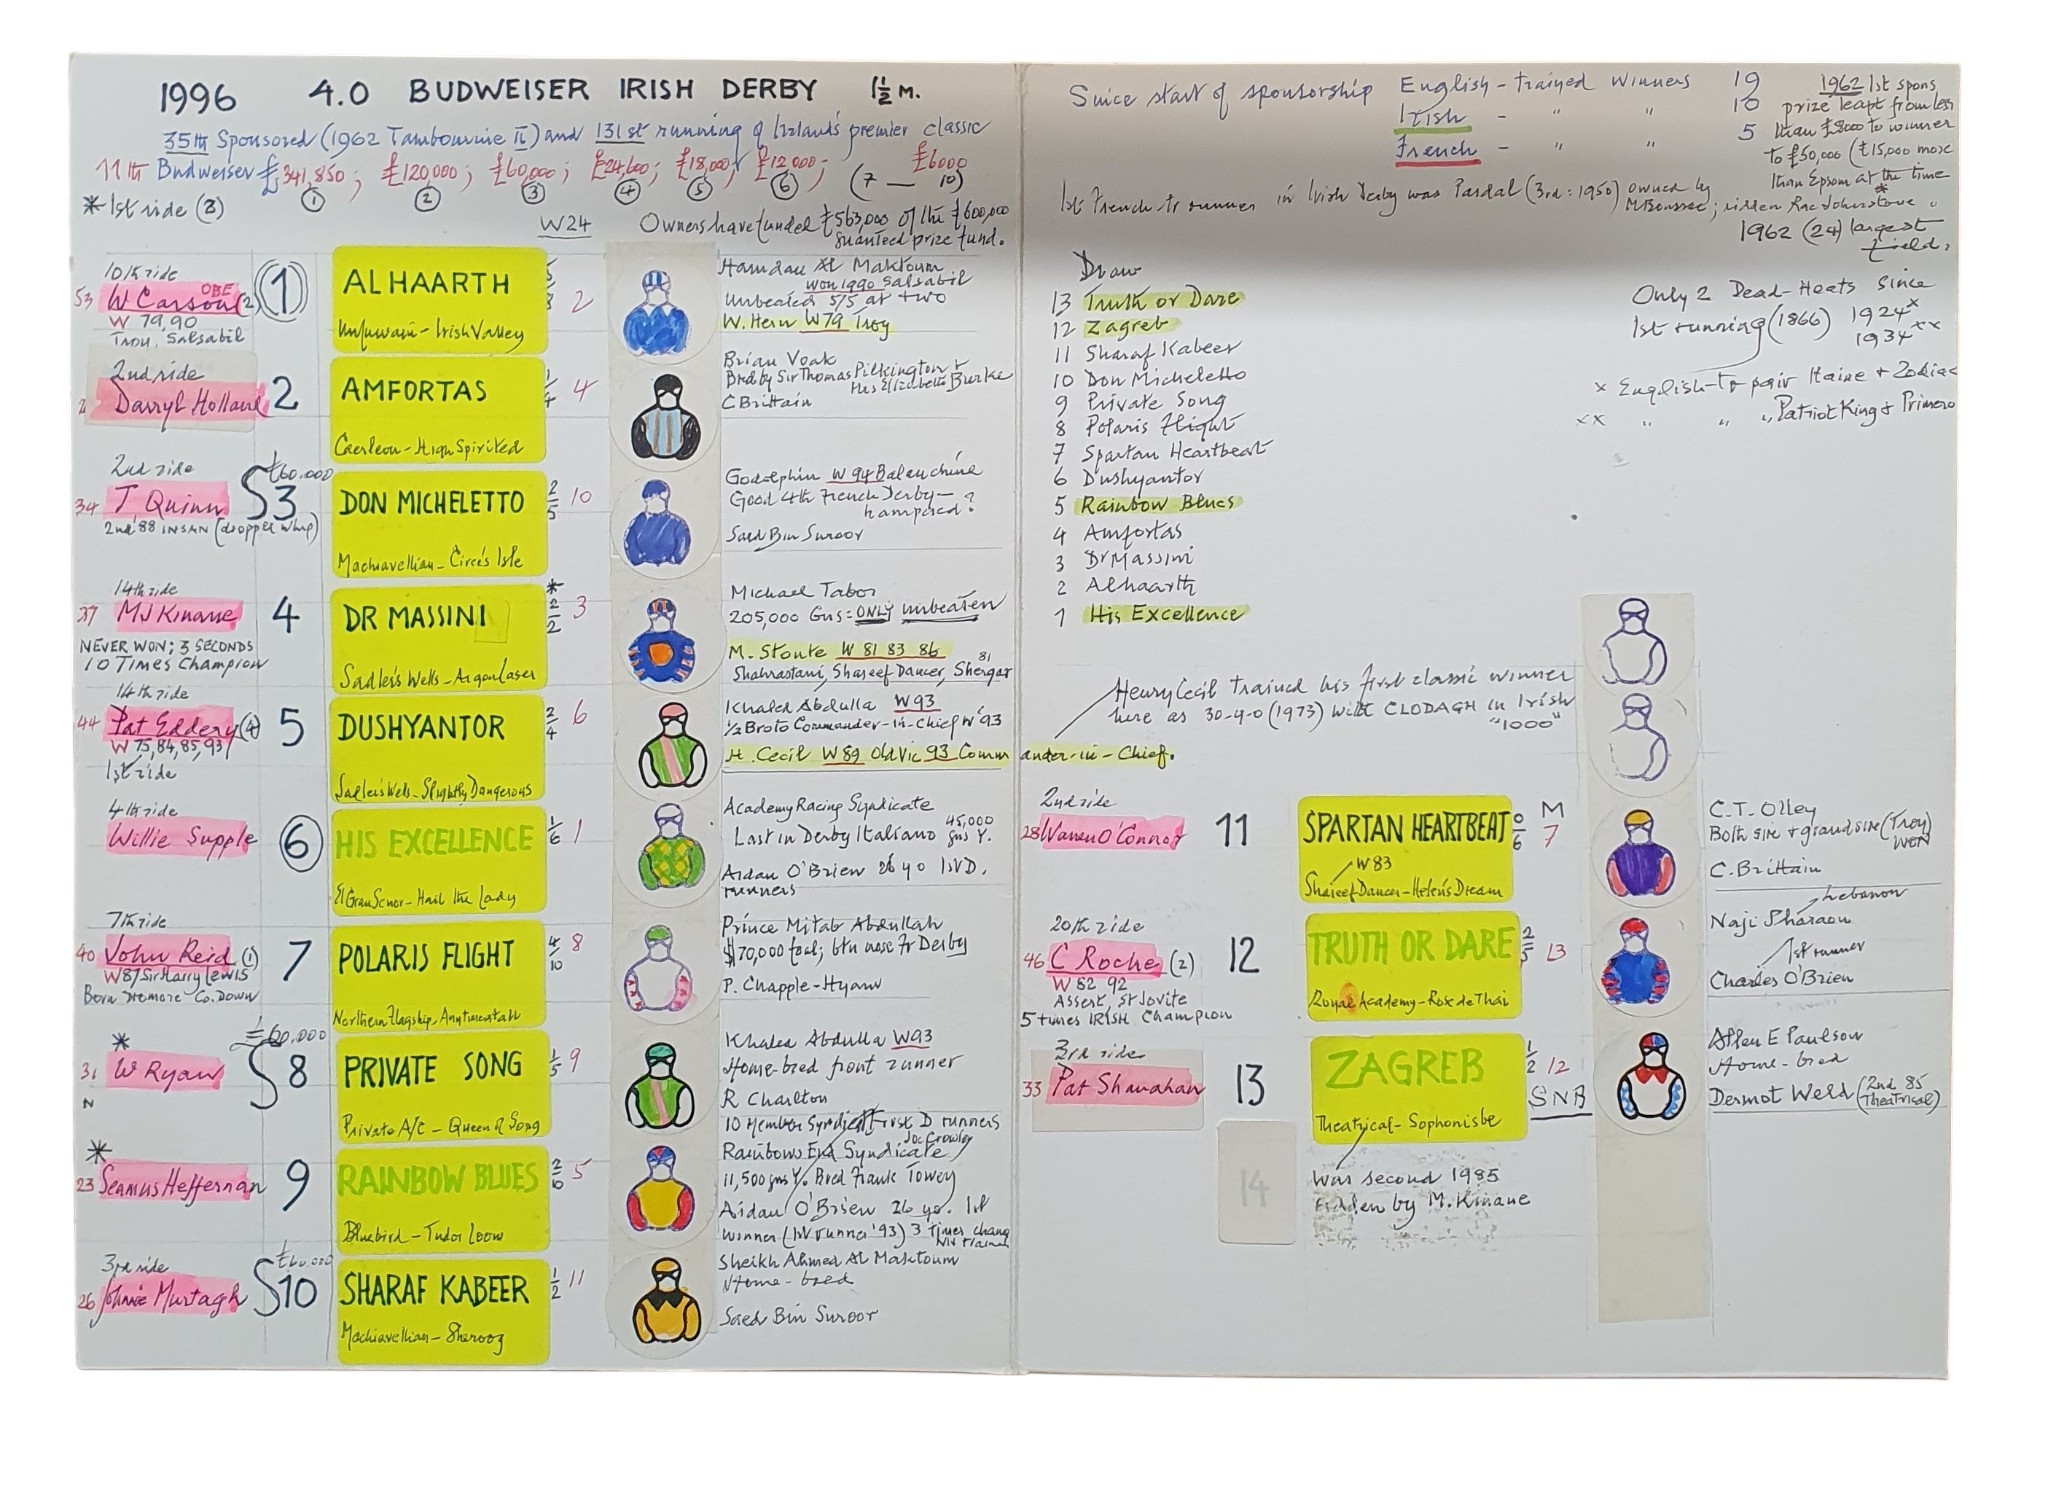 1996 4.0 BUDWEISER IRISH DERBY 1½ M.
35th Sponsored (1962 Tambourine II) and 131st running of Ireland's premier classic
11th Budweiser £341,850; £120,000; £60,000; £24,600; £18,000; £12,000; £6000
1 2 3 4 5 6 (7 — 10)
*1st ride (3)
W24
Owners have funded £563,000 of the £600,000
guanteed prize fund.
10th ride
53 W Carson OBE (2)
W 79,90
Troy, Salsabil
1
ALHAARTH
Unfuwain - Irish Valley
2
Hamdan Al Maktoum
won 1990 Salsabil
Unbeaten 5/5 at two
W. Hern W79 Troy
2nd ride
Darryl Holland
2
AMFORTAS
Caerleon - High Spirited
1/4 4
Brian Voak
Bred by Sir Thomas Pilkington +
Mrs Elizabeth Burke
C Brittain
2nd ride
34 T. Quinn
2nd '88 INSAN (dropper whip)
£60.000
S3
DON MICHELETTO
Machiavellian - Circe's Isle
2/5 10
Godolphin W 94 Balanchine
Good 4th French Derby -
hampered?
Saed Bin Suroor
14th ride
37 MJ Kinane
NEVER WON; 3 SECONDS
10 Times Champion
4
DR MASSINI
Sadler's Wells - Argon Laser
*
2/2 3
Michael Tabor
205,000 Gns = ONLY unbeaten
M. Stoute W 81 83 86
Shahrastani, Shareef Dancer, Shergar 81
14th ride
44 Pat Eddery (4)
W 75, 84, 85, 93
1st ride
5
DUSHYANTOR
Sadler's Wells - Slightly Dangerous
2/4 6
Khaled Abdulla W93
½ Bro to Commander-in-Chief W'93
H. Cecil W89 Old Vic 93 Commander-in-Chief.
4th ride
Willie Supple
6
HIS EXCELLENCE
El Gran Senor - Hail the Lady
1/6 1
Academy Racing Syndicate
Last in Derby Italiano 45,000 gns Y.
Aidan O'Brien 26 yo 1st D.
runners
7th ride
40 John Reid (1)
W87 Sir Harry Lewis
Born Dromore Co. Down
7
POLARIS FLIGHT
Northern Flagship - Anytimeatall
4/10 8
Prince Mitab Abdullah
$70,000 foal; btn nose Fr Derby
P. Chapple-Hyam
*
31 W Ryan
N
£60.000
S8
PRIVATE SONG
Private A/C - Queen of Song
1/5 9
Khaled Abdulla W93
Home-bred front runner
R Charlton
*
23 Seamus Heffernan
9
RAINBOW BLUES
Bluebird - Tudor Loom
2/10 5
10 Member Syndicate First D runners
Rainbow Era Syndicate Joe Crowley
11,500 gns Y. Bred Frank Towey
Aidan O'Brien 26 yo. 1st
winner (1st runner '93) 3 Times champ
NH trainer
3rd ride
26 Johnnie Murtagh
£60.000
S10
SHARAF KABEER
Machiavellian - Sheroog
1/2 11
Sheikh Ahmed Al Maktoum
Home-bred
Saed Bin Suroor
Since start of sponsorship English-trained winners 19
Irish - " " 10
French - " " 5
1962 1st spons
prize leapt from less
than £8000 to winner
to £50,000 (£15,000 more
than Epsom at the time
1st French tr runner in Irish Derby was Pardal (3rd: 1950) owned by
M Boussac; ridden Rae Johnstone.
1962 (24) largest
field.
Draw
13 Truth or Dare
12 Zagreb
11 Sharaf Kabeer
10 Don Micheletto
9 Private Song
8 Polaris Flight
7 Spartan Heartbeat
6 Dushyantor
5 Rainbow Blues
4 Amfortas
3 Dr Massini
2 Alhaarth
1 His Excellence
Only 2 Dead-Heats since
1st running (1866) 1924 x
1934 xx
x English-tr pair Haine + Zodiac
xx " " Patriot King + Primero
Henry Cecil trained his first classic winner
here as 30-y-o (1973) with CLODAGH in Irish
"1000"
2nd ride
28 Warren O'Connor
11
SPARTAN HEARTBEAT
W83
Shareef Dancer - Helen's Dream
M
0/6 7
C.T. Olley
Both sire + grandsire (Troy)
WON
C. Brittain
20th ride
46 C Roche (2)
W 82 92
Assert, St Jovite
5 times IRISH Champion
12
TRUTH OR DARE
Royal Academy - Rose de Thai
2/5 13
Lebanon
Naji Pharaon
1st runner
Charles O'Brien
3rd ride
33 Pat Shanahan
13
ZAGREB
Theatrical - Sophonisbe
1/2 12
SNB
Allen E Paulson
Home-bred
Dermot Weld (2nd 85
Theatrical)
14
Was second 1985
ridden by M. Kinane